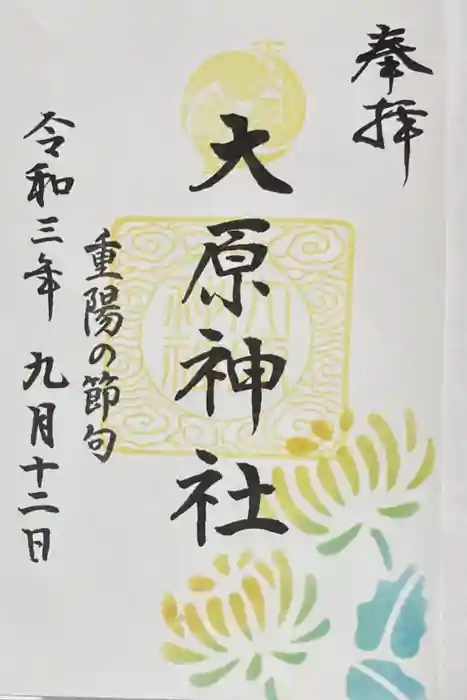 奉拝
大原神社
重陽の節句
令和三年九月十二日